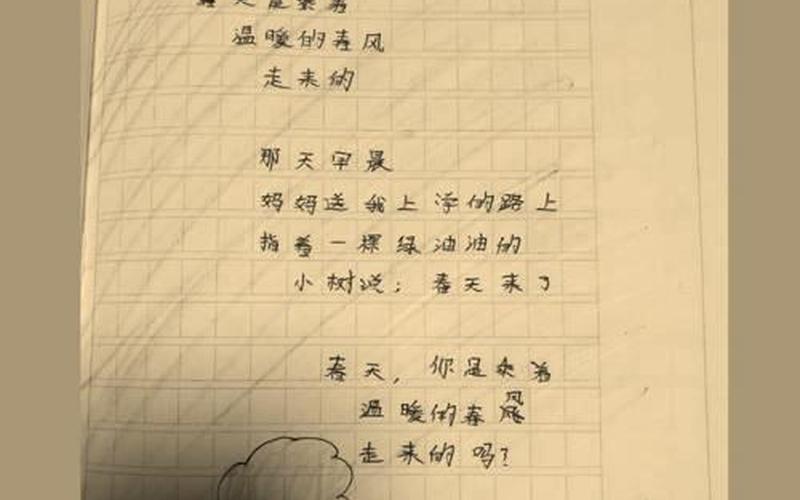 温暖的春风
走来的
那天早晨
妈妈送我上学的路上
指着一棵绿油油的
小树说：春天来了
春天，你是乘着
温暖的春风
走来的吗？